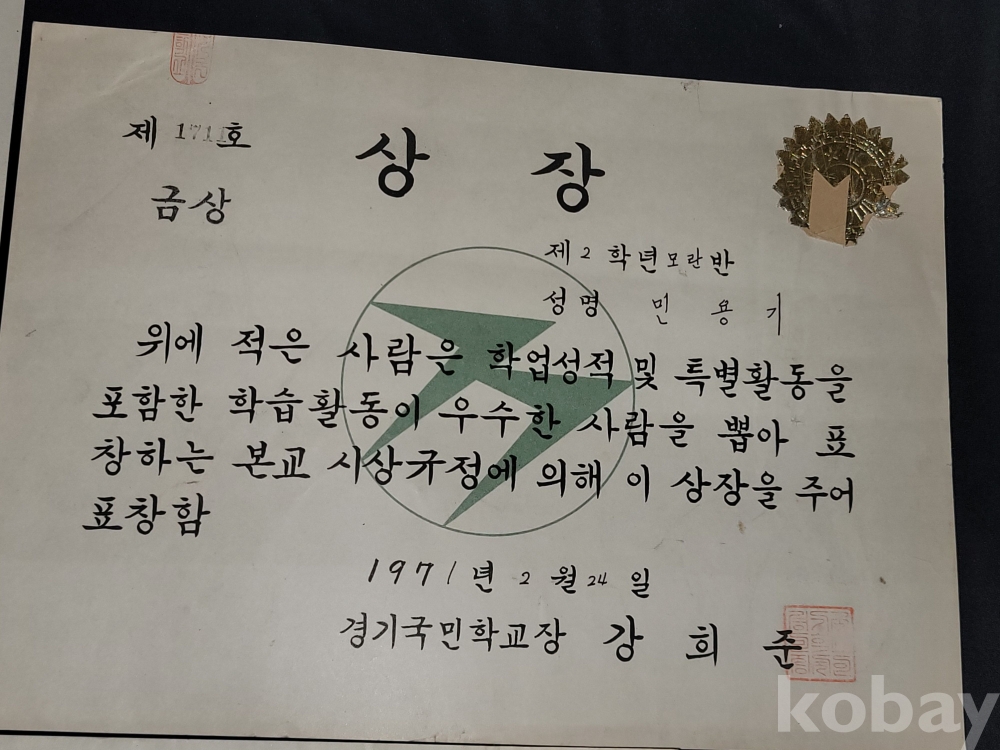 제 171호
상 장
금상
제 2 학년 모란 반
성명 민 용 기
위에 적은 사람은 학업성적 및 특별활동을
포함한 학습활동이 우수한 사람을 뽑아 표
창하는 본교 시상규정에 의해 이 상장을 주어
표창함
1971년 2월 24일
경기국민학교장 강 희 준
kobay